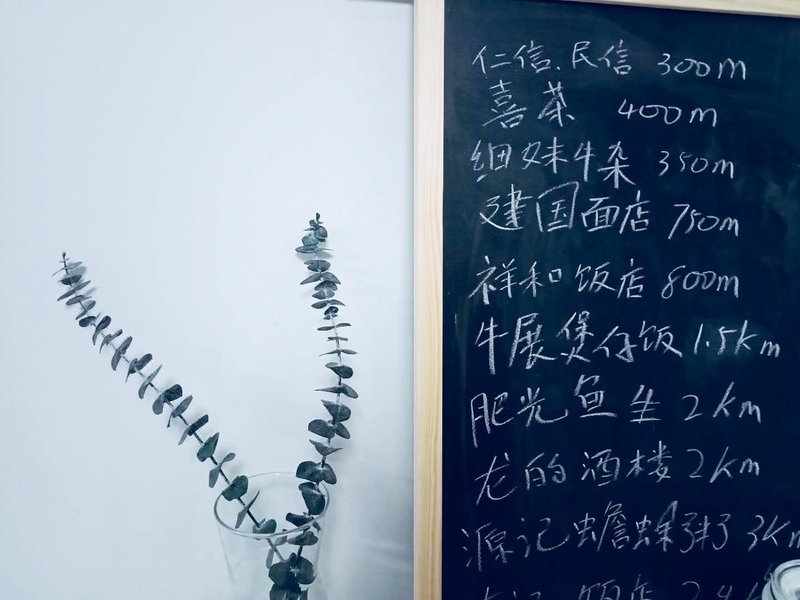 仁信.民信 300m
喜茶 400m
细妹牛杂 350m
建国面店 750m
祥和饭店 800m
牛展煲仔饭 1.5km
肥光鱼生 2km
龙的酒楼 2km
源记蟾蜍粥 3km
记饭店